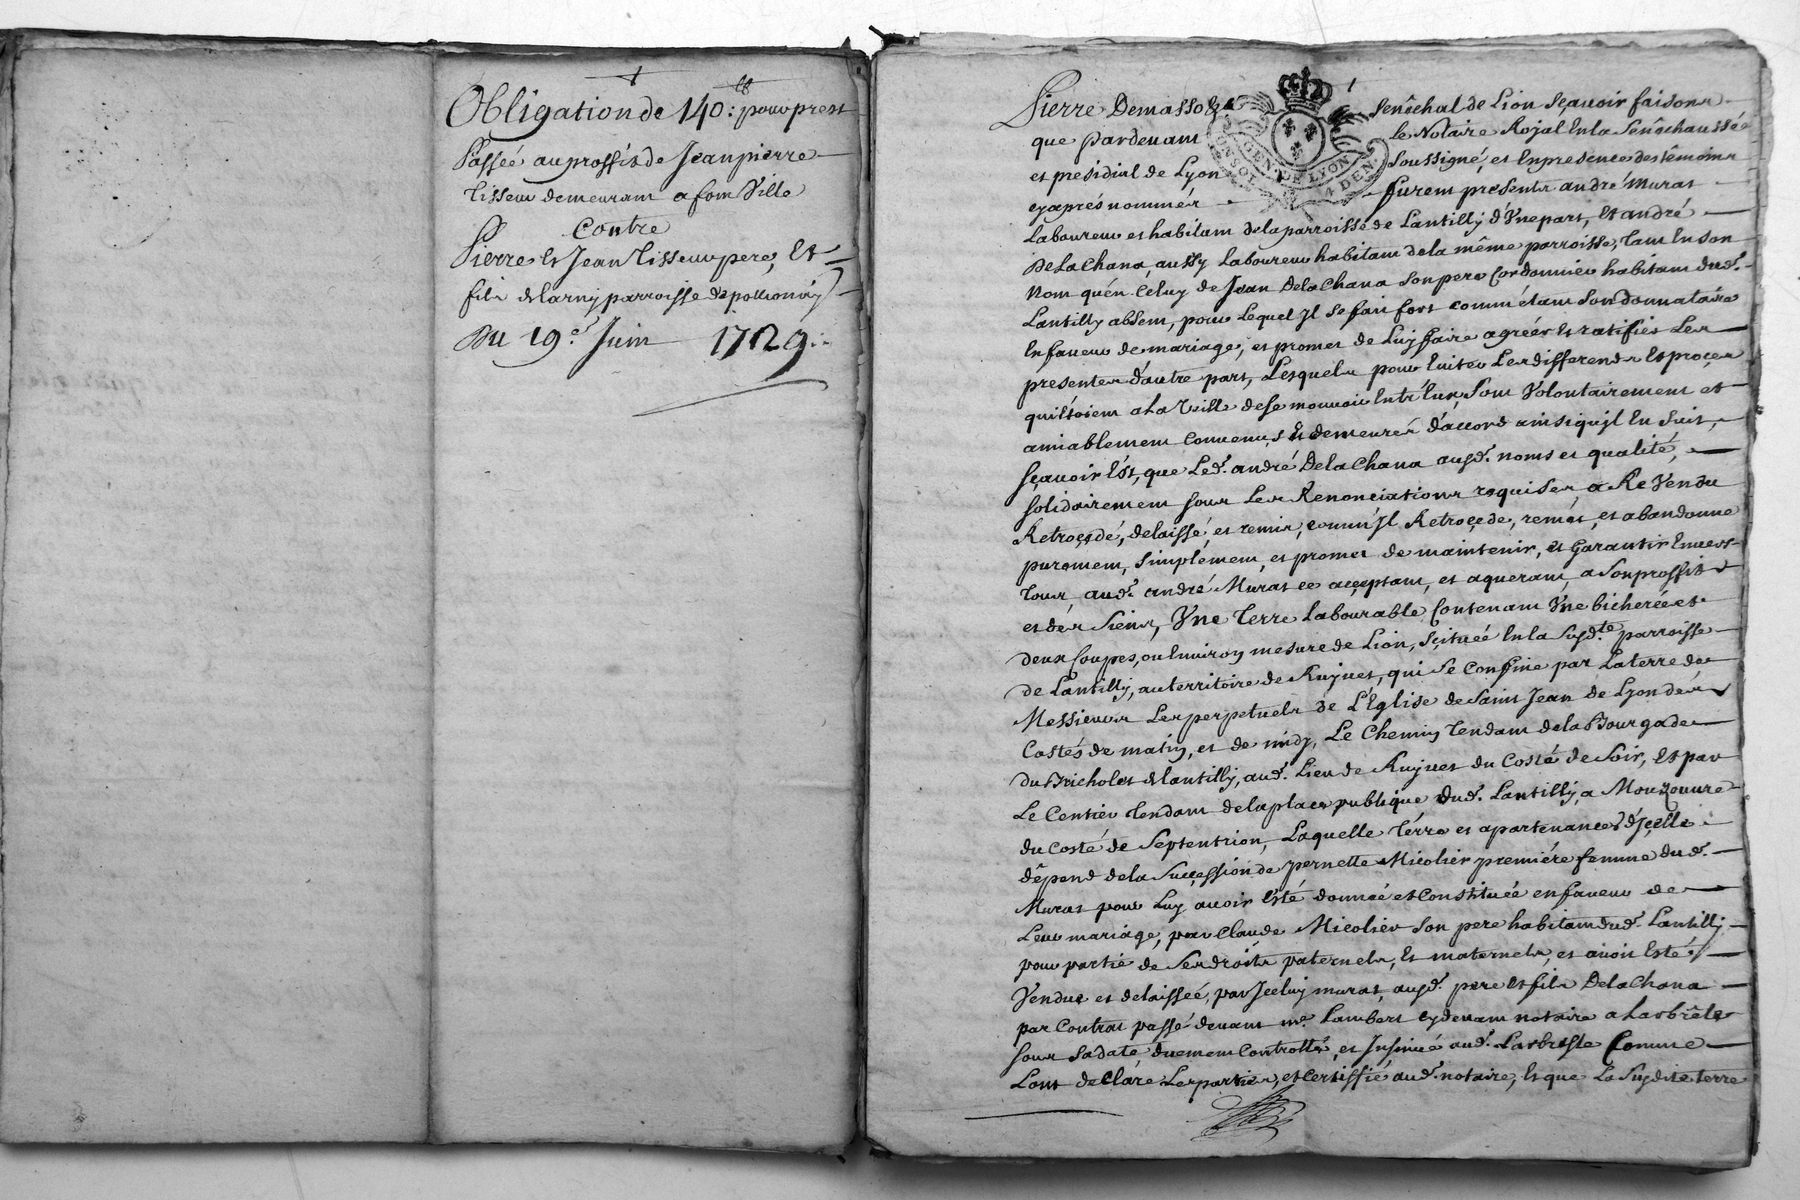 Obligation de 140 ₶: pour prest
Passéé au proffit de Jean pierre
tisseur demeurant a fontville
Contre
Pierre et Jean Tisseur pere, Et
fils de larny parroisse de pollionay
Du 19e. Juin 1729
Pierre Demasso Senêchal de Lion sçavoir faisons
que pardevant le Notaire Royal En la Senêchaussée
et présidial de Lyon Soussigné, et En presence des têmoins
cyaprés nommés furent presents andré Murat
GEN. DE LYON
UN SOL 4 DEN.
Laboureur et habitant de la parroisse de Lantilly d'Vne part, Et andré
De La Chana, aussy laboureur habitant de la même parroisse, tant En son
Nom qu'en Celuy de Jean De la Chana Son pere Cordonnier habitant dud.
Lantilly absent, pour Lequel Jl Se fait fort comm'étant Son donnataire
En faveur de mariage, et promet de Luy faire agréér Et ratifier Les
presentes d'autre part, Lesquels pour Euiter Les differends Et procés
qu'ils étoient a La Veille de se mouvoir Entr'Eux, Sont Volontairement et
amiablement Convenus Et demeurés d'accord ainsi qu'jl En Suit,
Sçavoir Est, que Led. andré De la Chana ausd. noms et qualité,
solidairement sous Les Renonciations requises, a ReVendu
Retrocédé, delaissé, et remis, comm'Jl Retrocede, remét, et abandonne
purement, Simplement, et promet de maintenir, et Garantir Envers
tous, aud. andré Murat ce acceptant, et aquerant a Son proffit
et des Siens, Vne Terre Labourable Contenant Vne bicherée et
deux Coupes, ou Environ mesure de Lion, Scituée En la Susd.te parroisse
de Lantilly, au territoire de Ruynes, qui Se Confine par La terre de
Messieurs Les perpetuels de L'Eglise de Saint Jean de Lyon des
Costés de matin, et de midy, Le Chemin Tendant de la Bourgade
du Bricholet de lantilly, aud. Lieu de Ruynes du Costé de Soir, Et par
Le Centier Tendant de la place publique dud. Lantilly, a Mouzouvre
du Costé de Septentrion, Laquelle Térre et apartenances d'Jcelle
dêpend de la Succession de pernette Micolier premiére femme dud.
Murat pour Luy avoir Esté donnée et Constituée en faveur de
Leur mariage, par Claude Micolier Son pere habitant dud. Lantilly
pour partie de Ses droits paternels, Et maternels, et avoir Esté
Vendue et delaisséé, par Jceluy murat, ausd. pere Et fils De la Chana
par Contrat passé devant me. Lambert cydevant notaire a Larbrêsle
sous Sa date, duement Controllé, et Jnsinué aud. Larbresle Comme
L'ont declâré Les parties, et Certiffié aud. notaire, Et que La Susdite terre